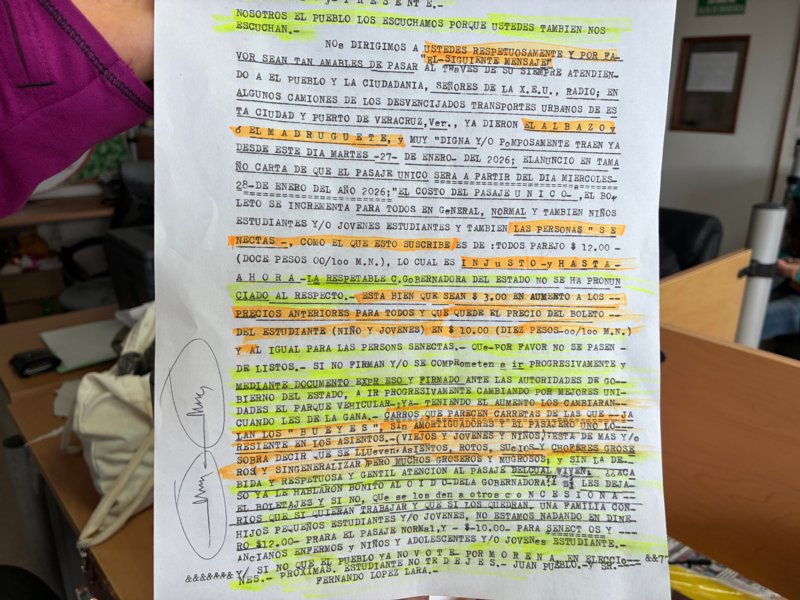 P R E S E N T E.-
NOSOTROS EL PUEBLO LOS ESCUCHAMOS PORQUE USTEDES TAMBIEN NOS
ESCUCHAN.-
NOs DIRIGIMOS A USTEDES RESPETUOSAMENTE Y POR FA-
VOR SEAN TAN AMABLES DE PASAR "EL-SIGUIENTE MENSAJE"
AL TRAVES DE SU SIEMPRE ATENDIEN-
DO A EL PUEBLO Y LA CIUDADANIA, SEÑORES DE LA X.E.U., RADIO; EN
ALGUNOS CAMIONES DE LOS DESVENCIJADOS TRANSPORTES URBANOS DE ES
TA CIUDAD Y PUERTO DE VERACRUZ,Ver., YA DIERON EL A L B A Z O y
ó EL M A D R U G U E T E, y MUY "DIGNA Y/O POMPOSAMENTE TRAEN YA
DESDE ESTE DIA MARTES -27- DE ENERO- DEL 2026; ELANUNCIO EN TAMA
ÑO CARTA DE QUE EL PASAJE UNICO SERA A PARTIR DEL DIA MIERCOLES-
28-DE ENERO DEL AÑO 2026;"EL COSTO DEL PASAJE U N I C O- ,EL BO-
LETO SE INCREMENTA PARA TODOS EN GeNERAL, NORMAL Y TAMBIEN NIÑOS
ESTUDIANTES Y/O JOVENES ESTUDIANTES Y TAMBIEN LAS PERSONAS" SE
NECTAS -, COMO EL QUE ESTO SUSCRIBE; ES DE :TODOS PAREJO $ 12.00 -
(DOCE PESOS 00/100 M.N.), LO CUAL ES I N J u S T O -y H A S T A -
A H O R A -LA RESPETABLE C.GOBERNADORA DEL ESTADO NO SE HA PRONUN
CIADO AL RESPECTO.- ESTA BIEN QUE SEAN $ 3.00 EN AUMENTO A LOS --
PRECIOS ANTERIORES PARA TODOS Y QUE QUEDE EL PRECIO DEL BOLETO--
DEL ESTUDIANTE (NIÑO Y JOVENES) EN $ 10.00 (DIEZ PESOS-00/100 M.N.)
Y AL IGUAL PARA LAS PERSONS SENECTAS.- QUe-POR FAVOR NO SE PASEN -
DE LISTOS.- SI NO FIRMAN Y/O SE COMPRometen a ir PROGRESIVAMENTE y
MEDIANTE DOCUMENTO EXPR ESO Y FIRMADO ANTE LAS AUTORIDADES DE GO--
BIERNO DEL ESTADO, A IR PROGRESIVAMENTE CAMBIANDO POR MEJORES UNI-
DADES EL PARQUE VEHICULAR.-YA- TENIENDO EL AUMENTO LOS CAMBIARAN-
CUANDO LES DE LA GANA.- CARROS QUE PARECEN CARRETAS DE LAS QUE --JA
LAN LOS " B U E Y E S " SIN AMORTIGUADORES Y EL PASAJERO UNO LO-
RESIENTE EN LOS ASIENTOS.-(VIEJOS Y JOVENES Y NIÑOS)ESTE DE MAS Y/o
SOBRA DECIR QUE SE LLUEVEN ASIENTOS, ROTOS, SUCIOS Y CHOFERES GROSE
ROS( Y SINGENERALIZAR PERO MUCHOS GROSEROS Y MUGROSOS; Y SIN LA DE-
BIDA Y RESPETUOSA Y GENTIL ATENCION AL PASAJE DELCUAL VIVEN. ¿¿ACA
SO YA LE HABLARON BONITO AL O I D O -DELA GOBERNADORA??¡ LES DEJA--
EL BOLETAJES Y SI NO, QUe se los den a otros c o N C E S I O N A --
RIOS QUE SI QUIERAN TRABAJAR Y QUE SI LOS QUEDRAN, UNA FAMILIA CON-
HIJOS PEQUEÑOS ESTUDIANTES Y/O JOVENES, NO ESTAMOS NADANDO EN DINE
RO $12.00- PRARA EL PASAJE NORMal,Y - $-10.00.- PARA SENECT OS Y --
ANCIANOS ENFERMOS y NIÑOS Y ADOLESCENTES Y/O JOVENes ESTUDIANTE.-
Y/ SI NO QUE EL PUEBLO YA NO V O T E P O R M O R E N A. EN ELECCIo----
&&&&&&& NES.- PROXIMAS. ESTUDIANTE NO TE D E J E S.- JUAN PUEBLO.-Y SR.---- &&7
FERNANDO LOPEZ LARA.-